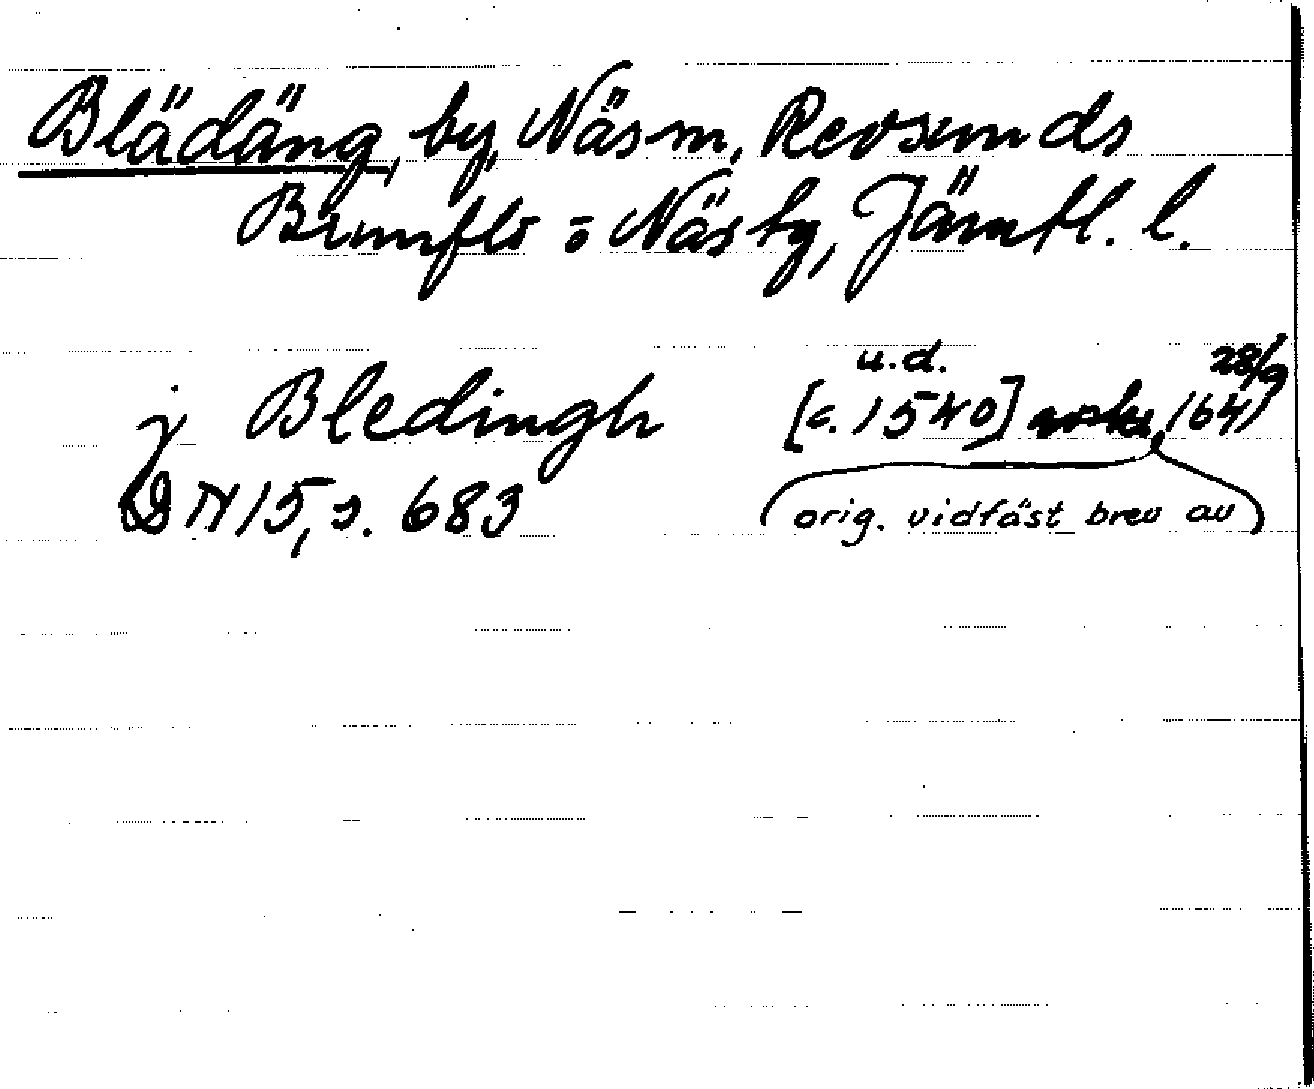 Blädäng, by, Näs sn, Revsunds
Brunflo o Näs tg, Jämtl. l.
j Bledingh u.d. [c. 1540] 28/9 1641
DN 15, s. 683 (orig. vidfäst brev av)